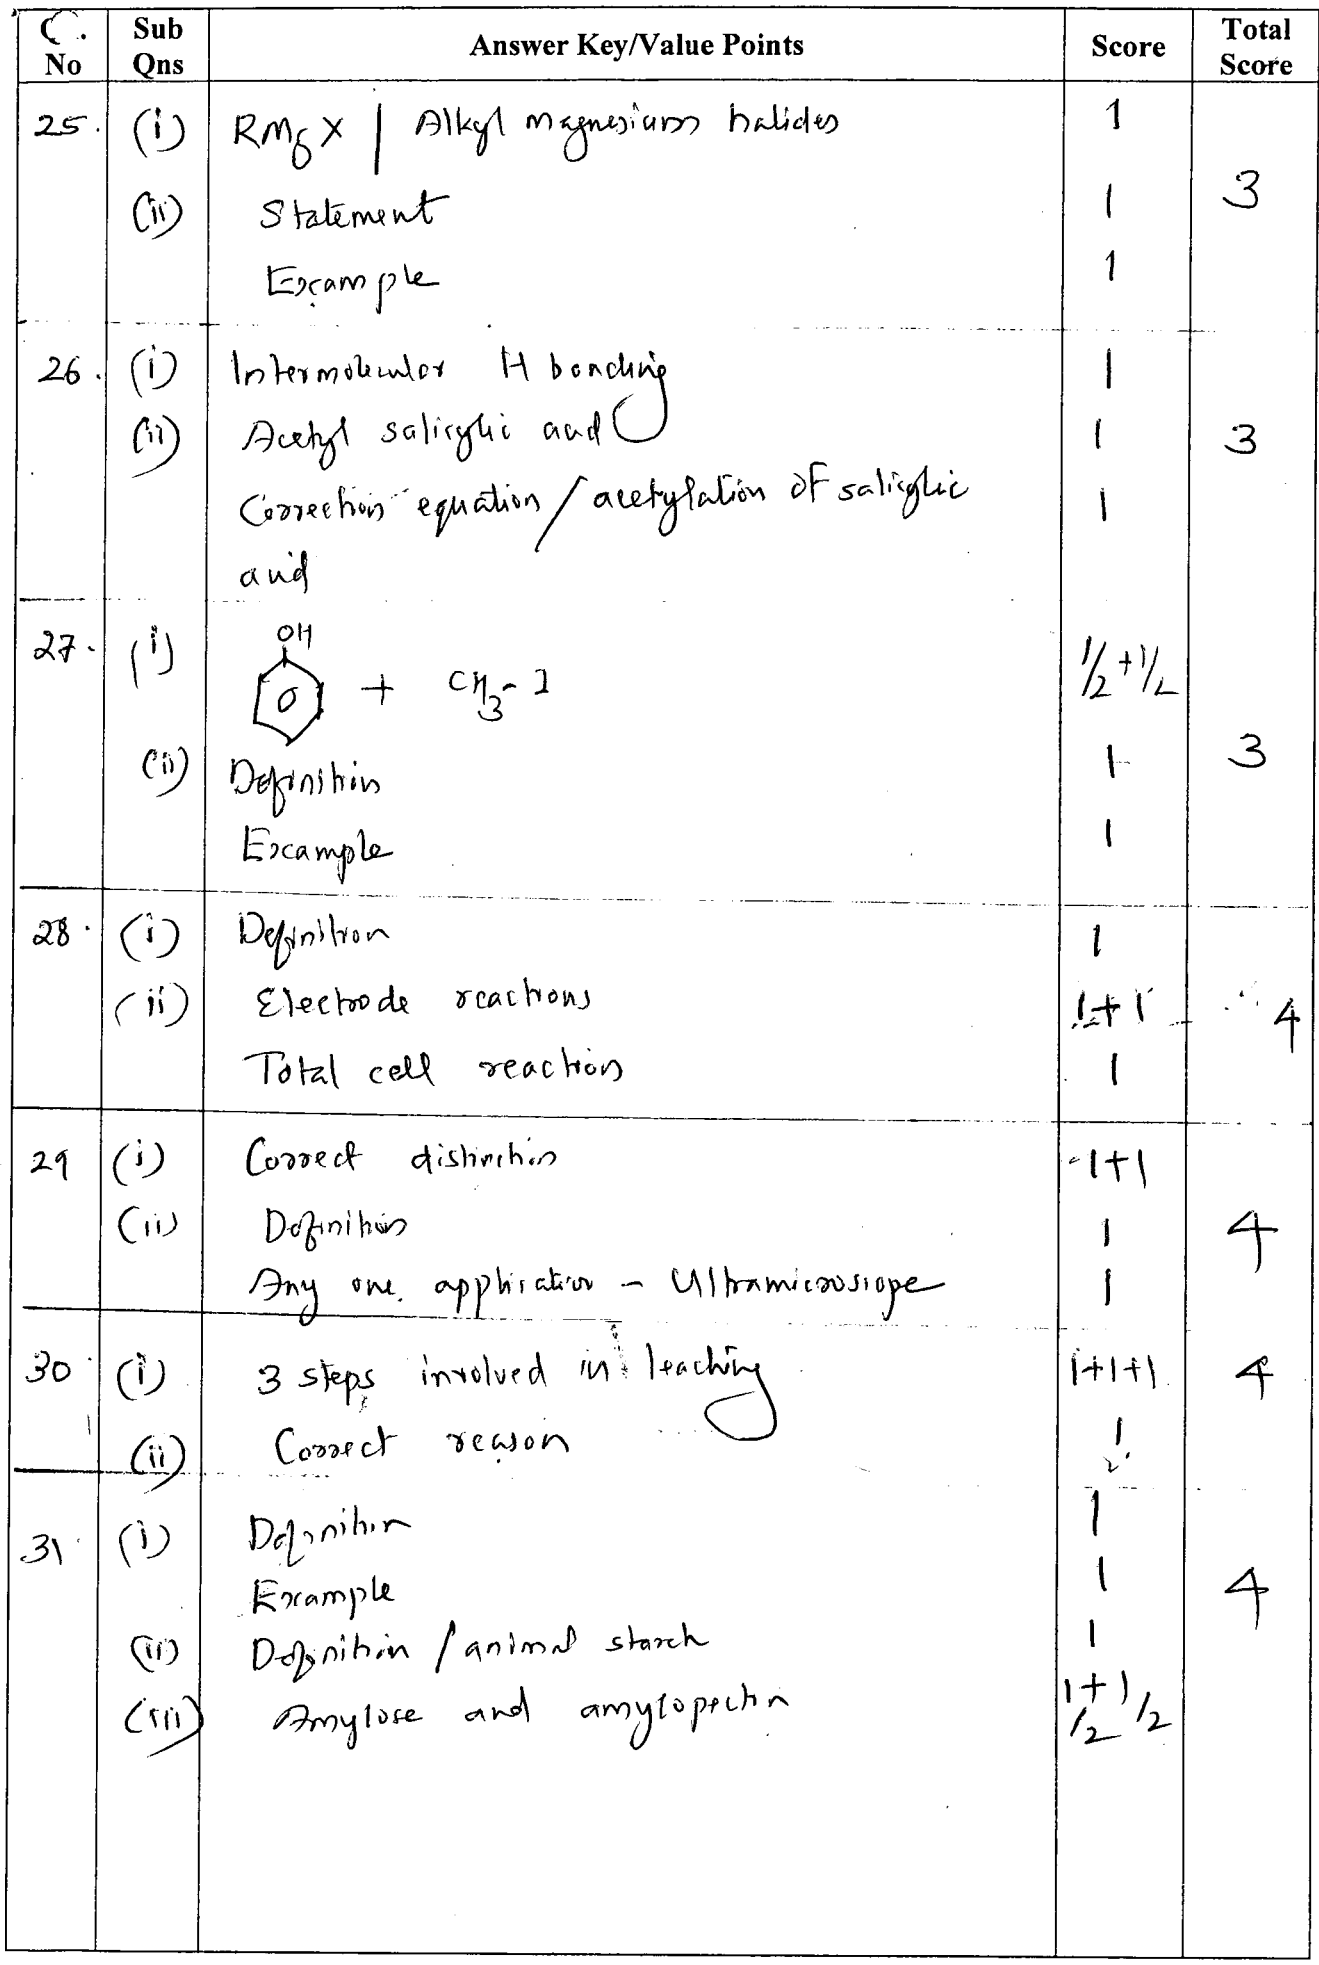 Q. No | Sub Qns | Answer Key/Value Points | Score | Total Score
25. (i) RMgX / Alkyl magnesium halides 1
(ii) Statement 1 3
Example 1
26. (i) Intermolecular H bonding 1
(ii) Acetyl salicylic acid 1 3
Correction equation / acetylation of salicylic 1
acid
27. (i) OH + CH3-I 1/2+1/2
(ii) Definition 1 3
Example 1
28. (i) Definition 1
(ii) Electrode reactions 1+1 4
Total cell reaction 1
29 (i) Correct distinction 1+1
(ii) Definition 1 4
Any one application - Ultramicroscope 1
30 (i) 3 steps involved in leaching 1+1+1 4
(ii) Correct reason 1
31 (i) Definition 1
Example 1 4
(ii) Definition / animal starch 1
(iii) Amylose and amylopectin 1/2+1/2